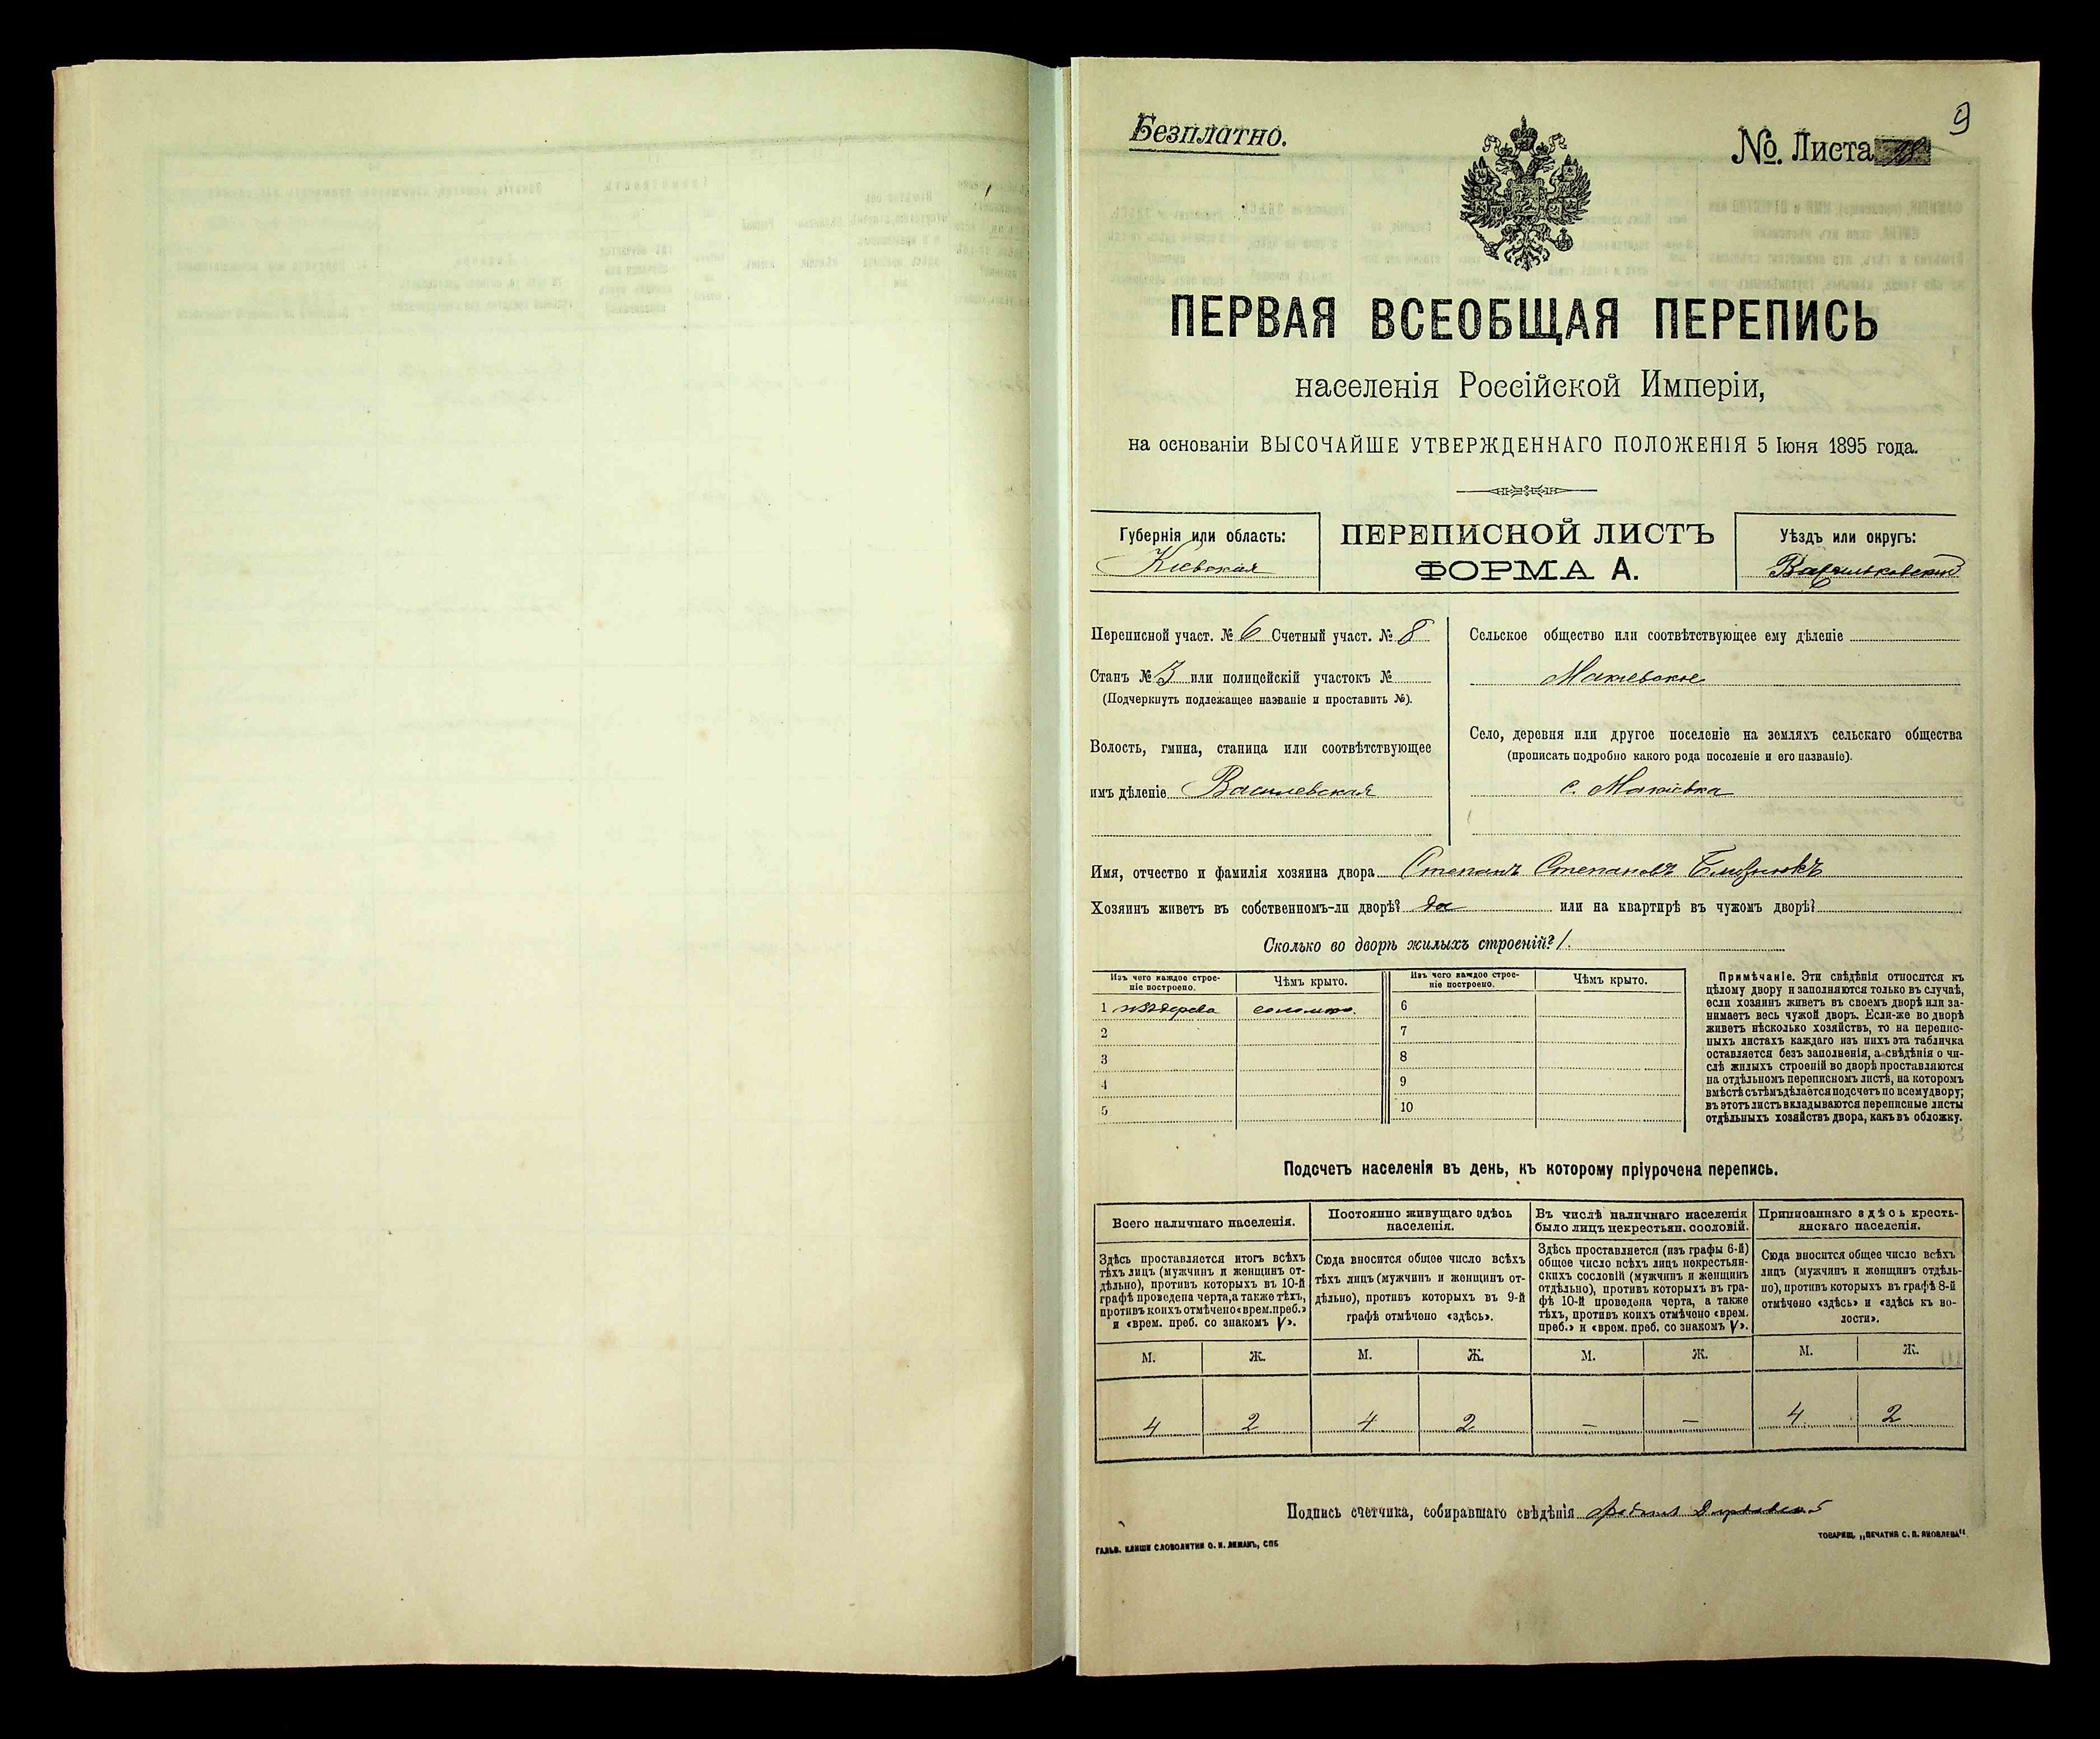 9
Безплатно.
№. Листа
ПЕРВАЯ ВСЕОБЩАЯ ПЕРЕПИСЬ
населенія Россійской Имперіи,
на основаніи ВЫСОЧАЙШЕ УТВЕРЖДЕННАГО ПОЛОЖЕНІЯ 5 Іюня 1895 года.
Губернія или область:
Кіевская
ПЕРЕПИСНОЙ ЛИСТЪ
ФОРМА А.
Уѣздъ или округъ:
Васильковскій
Переписной участ. № 6 Счетный участ. № 8
Станъ № 3 или полицейскій участокъ №
(Подчеркнуть подлежащее названіе и проставить №).
Волость, гмина, станица или соотвѣтствующее
имъ дѣленіе Василевская
Сельское общество или соотвѣтствующее ему дѣленіе
Макіевское
Село, деревня или другое поселеніе на земляхъ сельскаго общества
(прописать подробно какого рода поселеніе и его названіе).
с. Макіевка
Имя, отчество и фамилія хозяина двора Степанъ Степановъ Близнюкъ
Хозяинъ живетъ въ собственномъ-ли дворѣ? да или на квартирѣ въ чужомъ дворѣ?
Сколько во дворѣ жилыхъ строеній? 1.
Изъ чего каждое строе-
ніе построено.
Чѣмъ крыто.
1 изъ дерева соломою.
2
3
4
5
Изъ чего каждое строе-
ніе построено.
Чѣмъ крыто.
6
7
8
9
10
Примѣчаніе. Эти свѣдѣнія относятся къ
цѣлому двору и заполняются только въ случаѣ,
если хозяинъ живетъ въ своемъ дворѣ или за-
нимаетъ весь чужой дворъ. Если-же во дворѣ
живетъ нѣсколько хозяйствъ, то на перепис-
ныхъ листахъ каждаго изъ нихъ эта табличка
оставляется безъ заполненія, а свѣдѣнія о чи-
слѣ жилыхъ строеній во дворѣ проставляются
на отдѣльномъ переписномъ листѣ, на которомъ
вмѣстѣ съ тѣмъ дѣлается подсчетъ по всему двору;
въ этотъ листъ вкладываются переписные листы
отдѣльныхъ хозяйствъ двора, какъ въ обложку.
Подсчетъ населенія въ день, къ которому пріурочена перепись.
Всего наличнаго населенія.
Здѣсь проставляется итогъ всѣхъ
тѣхъ лицъ (мужчинъ и женщинъ от-
дѣльно), противъ которыхъ въ 10-й
графѣ проведена черта, а также тѣхъ,
противъ коихъ отмѣчено «врем. преб.»
и «врем. преб. со знакомъ V».
М. Ж.
4 2
Постоянно живущаго здѣсь
населенія.
Сюда вносится общее число всѣхъ
тѣхъ лицъ (мужчинъ и женщинъ от-
дѣльно), противъ которыхъ въ 9-й
графѣ отмѣчено «здѣсь».
М. Ж.
4 2
Въ числѣ наличнаго населенія
было лицъ некрестьян. сословій.
Здѣсь проставляется (изъ графы 6-й)
общее число всѣхъ лицъ некрестьян-
скихъ сословій (мужчинъ и женщинъ
отдѣльно), противъ которыхъ въ гра-
фѣ 10-й проведена черта, а также
тѣхъ, противъ коихъ отмѣчено «врем.
преб.» и «врем. преб. со знакомъ V».
М. Ж.
— —
Приписаннаго здѣсь кресть-
янскаго населенія.
Сюда вносится общее число всѣхъ
лицъ (мужчинъ и женщинъ отдѣль-
но), противъ которыхъ въ графѣ 8-й
отмѣчено «здѣсь» и «здѣсь къ во-
лости».
М. Ж.
4 2
Подпись счетчика, собиравшаго свѣдѣнія
ГАЛЬВ. КЛИШЕ СЛОВОЛИТНИ О. И. ЛЕМАНЪ, СПБ
ТОВАРИЩ. „ПЕЧАТНЯ С. П. ЯКОВЛЕВА“